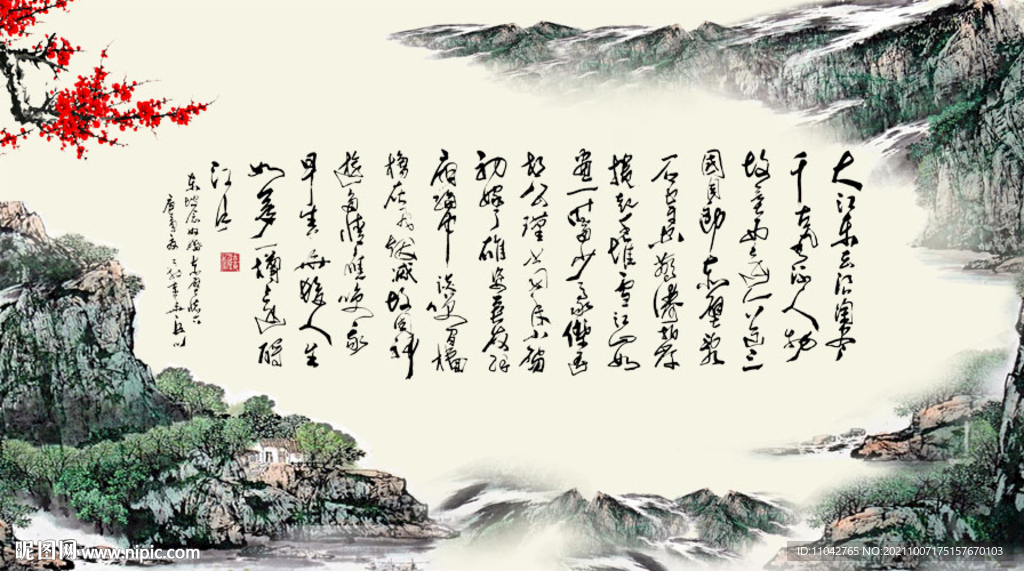 大江东去浪淘尽
千古風流人物
故垒西边人道是三
國周郎赤壁乱
石穿空惊涛拍岸
捲起千堆雪江山如
画一时多少豪傑遥
想公瑾当年小喬
初嫁了雄姿英发羽
扇纶巾谈笑间樯
橹灰飞烟灭故国神
遊多情应笑我
早生华髮人生
如夢一樽还酹
江月
东坡念奴娇赤壁怀古
昵图网 www.nipic.com
ID:11042765 NO:20211007175157670103